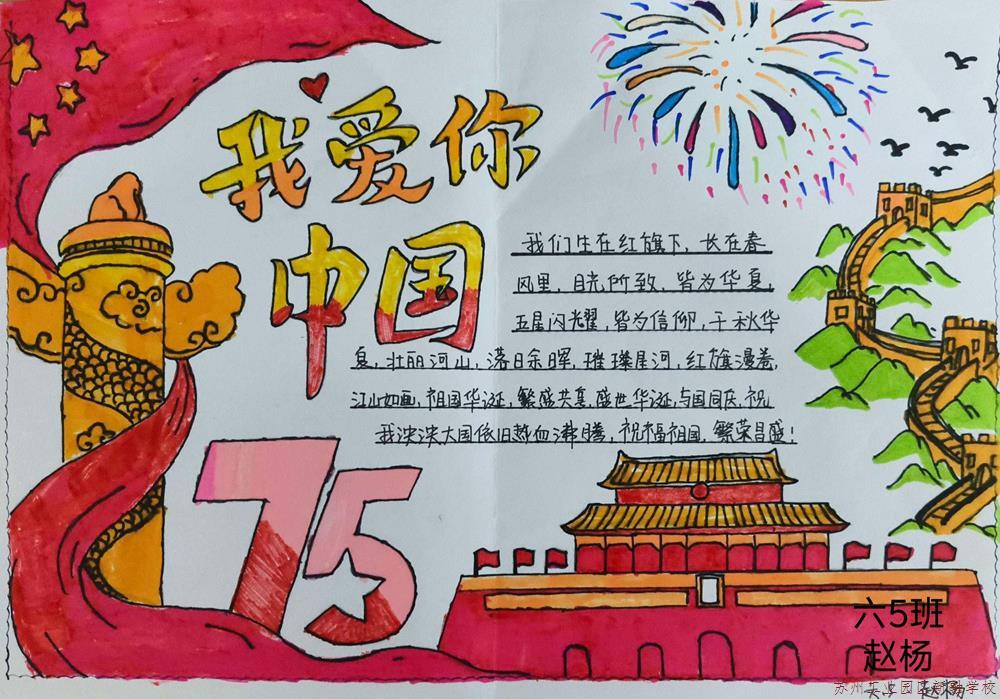 我爱你
中国
我们生在红旗下，长在春
风里，目光所致，皆为华夏，
五星闪光耀，皆为信仰，千秋华
夏，壮丽河山，落日余晖，璀璨星河，红旗漫卷，
江山如画，祖国华诞，繁盛共享，盛世华诞，与国同庆，祝
我泱泱大国依旧热血沸腾，祝福祖国，繁荣昌盛！
75
六5班
赵杨
苏州工业园区 学校